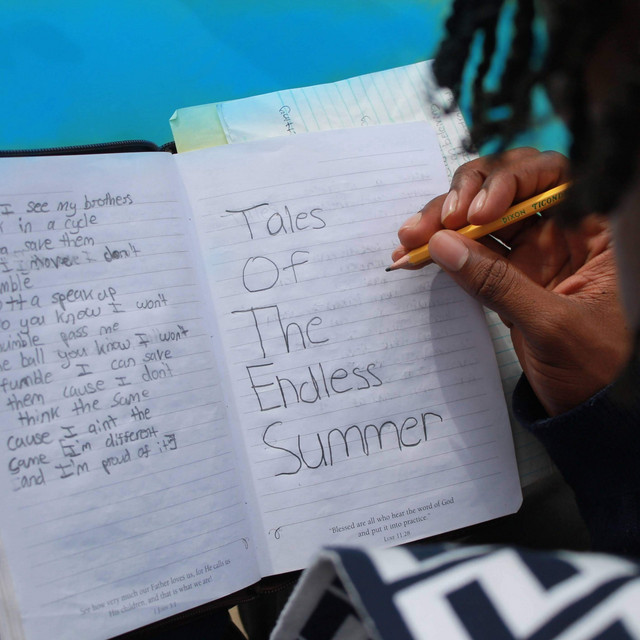 I see my brothers
in a cycle
save them
I don't
a speak up
you know I won't
pass me
bill you know I won't
fumble I can save
them cause I don't
think the same
cause I ain't the
same I'm different
and I'm proud of it
See how very much our Father loves us, for He calls us
His children, and that is what we are!
1 John 3:1
Tales
Of
The
Endless
Summer
"Blessed are all who hear the word of God
and put it into practice."
Luke 11:28
DIXON TICON